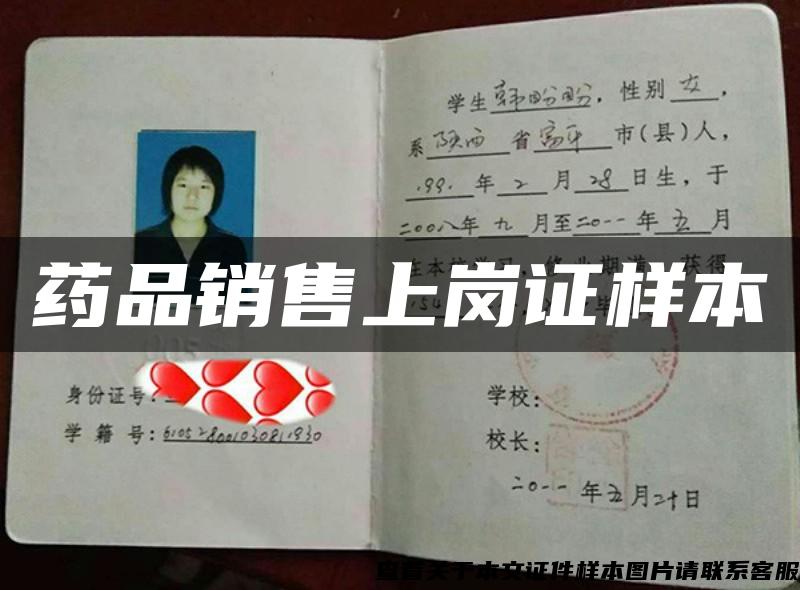 学生韩盼盼，性别女，
系陕西省富平市（县）人，
1991年2月28日生，于
二00八年九月至二0一一年五月
在本校学习，修业期满，获得
154
药品销售上岗证样本
身份证号：
学籍号：610528001030811930
学校：
校长：
二0一一年五月二十日
查看关于本文证件样本图片请联系客服